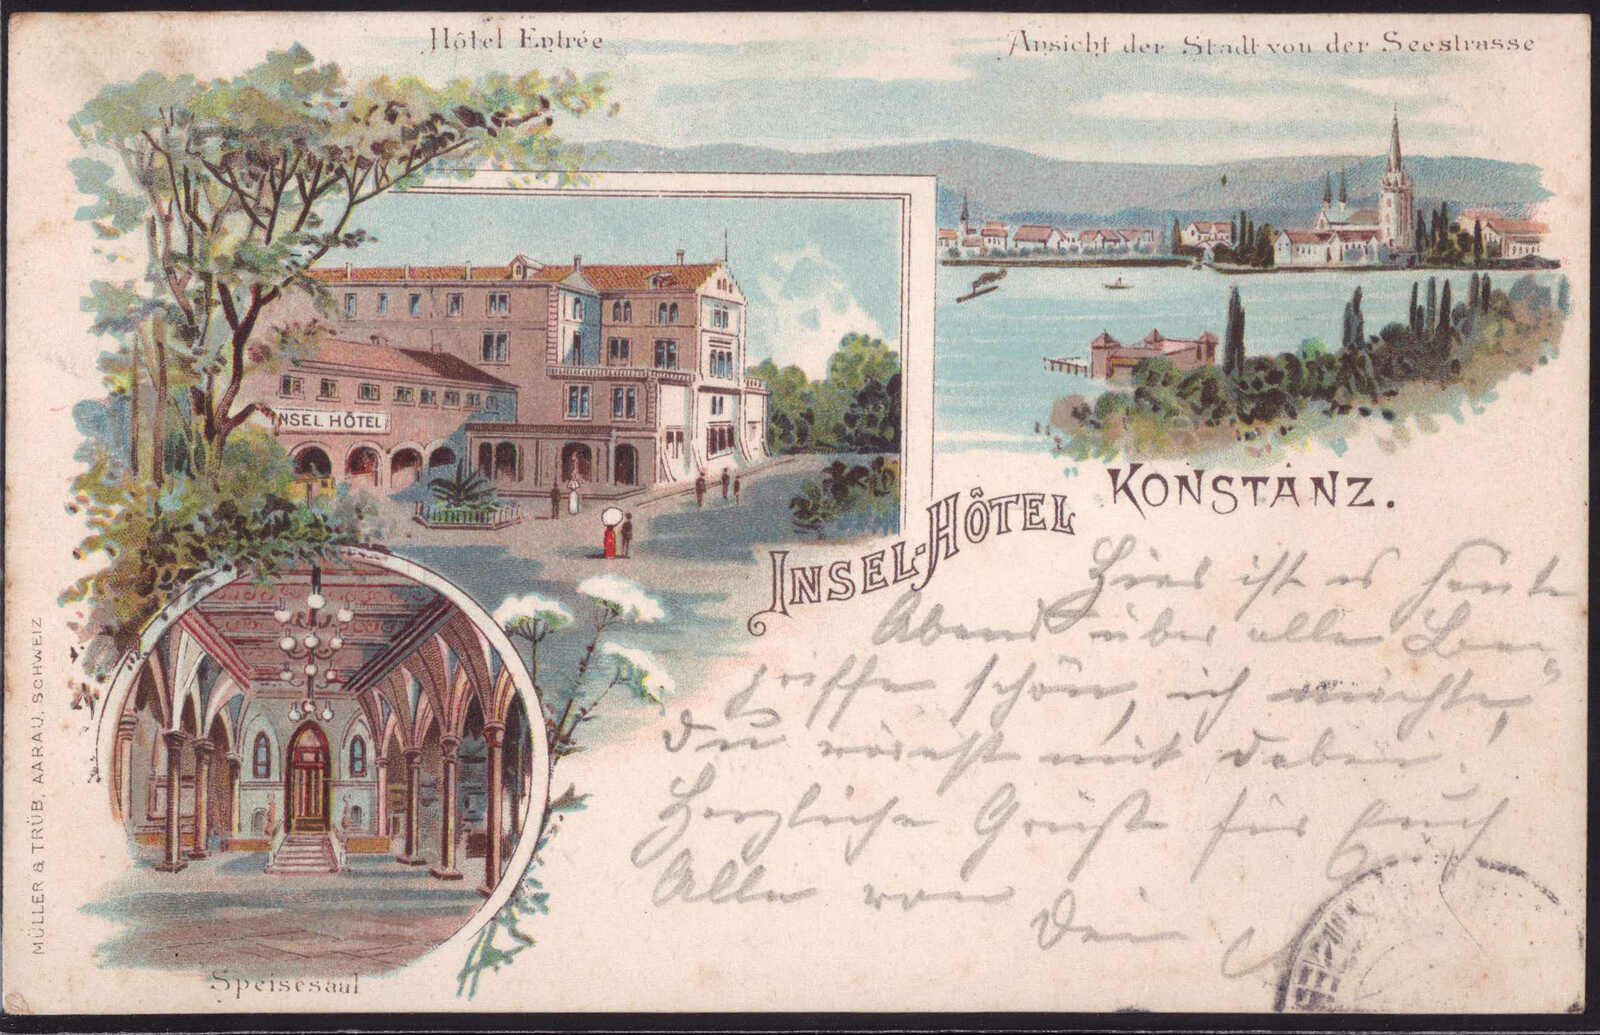 Hôtel Entrée
Ansicht der Stadt von der Seestrasse
INSEL HÔTEL
INSEL-HÔTEL KONSTANZ.
Hier ist es heute
Abend über alle Be-
griffe schön, ich möchte,
du wärest mit dabei!
Herzliche Grüße für Euch
Alle von
Dein
Speisesaal
MÜLLER & TRÜB, AARAU, SCHWEIZ